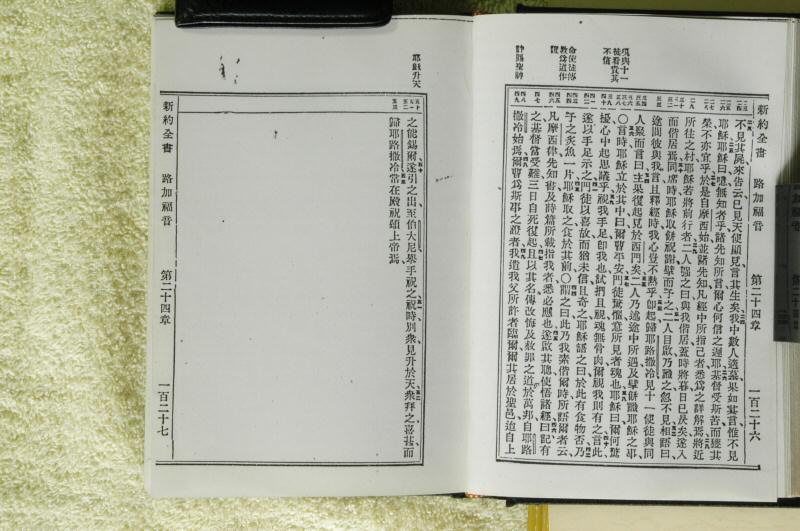 新約全書 路加福音 第二十四章 一百二十六
不見其屍來告云已見天使顯見言其生矣我中數人適墓果如其言惟不見
耶穌耶穌曰噫無知者乎諸先知所言爾心何信之遲耶基督受斯苦而獲其
榮不亦宜乎於是自摩西始並諸先知凡經中所指己者悉為之詳解焉將近
所往之村耶穌若將前行者二人強之曰與我偕居蓋時將暮日已昃矣遂入
而偕居焉同席時耶穌取餅祝謝擘而予之二人目啟乃識之忽不見相語曰
途間彼與我言且釋經時我心豈不熱乎即起歸耶路撒冷見十一使徒與同
人聚而言曰主果復起見於西門矣二人乃述途中所遇及擘餅識耶穌之事
○言時耶穌立於其中曰爾曹平安門徒驚懼意所見者魂也耶穌曰爾何驚
擾心中起思議乎視我手足即我也試捫且視魂無骨肉爾視我則有之言此
遂以手足示之門徒以喜故而猶未信且奇之耶穌語之曰於此有食物否乃
予之炙魚一片耶穌取之食於其前○謂之曰此乃我素偕爾時所語爾者云
凡摩西律先知書及詩篇所載指我者悉必應也遂啟其聰使悟諸經曰記有
之基督當受難三日自死復起且以其名傳改悔及赦罪之道於萬邦自耶路
撒冷始焉爾曹為斯事之證者我遣我父所許者臨爾爾其居於聖邑迨自上
命使徒傳
教為證作
靜賜聖神
耶穌升天
之能錫爾遂引之出至伯大尼舉手祝之祝時別衆見升於天衆拜之喜甚而
歸耶路撒冷常在殿祝頌上帝焉
新約全書 路加福音 第二十四章 一百二十七